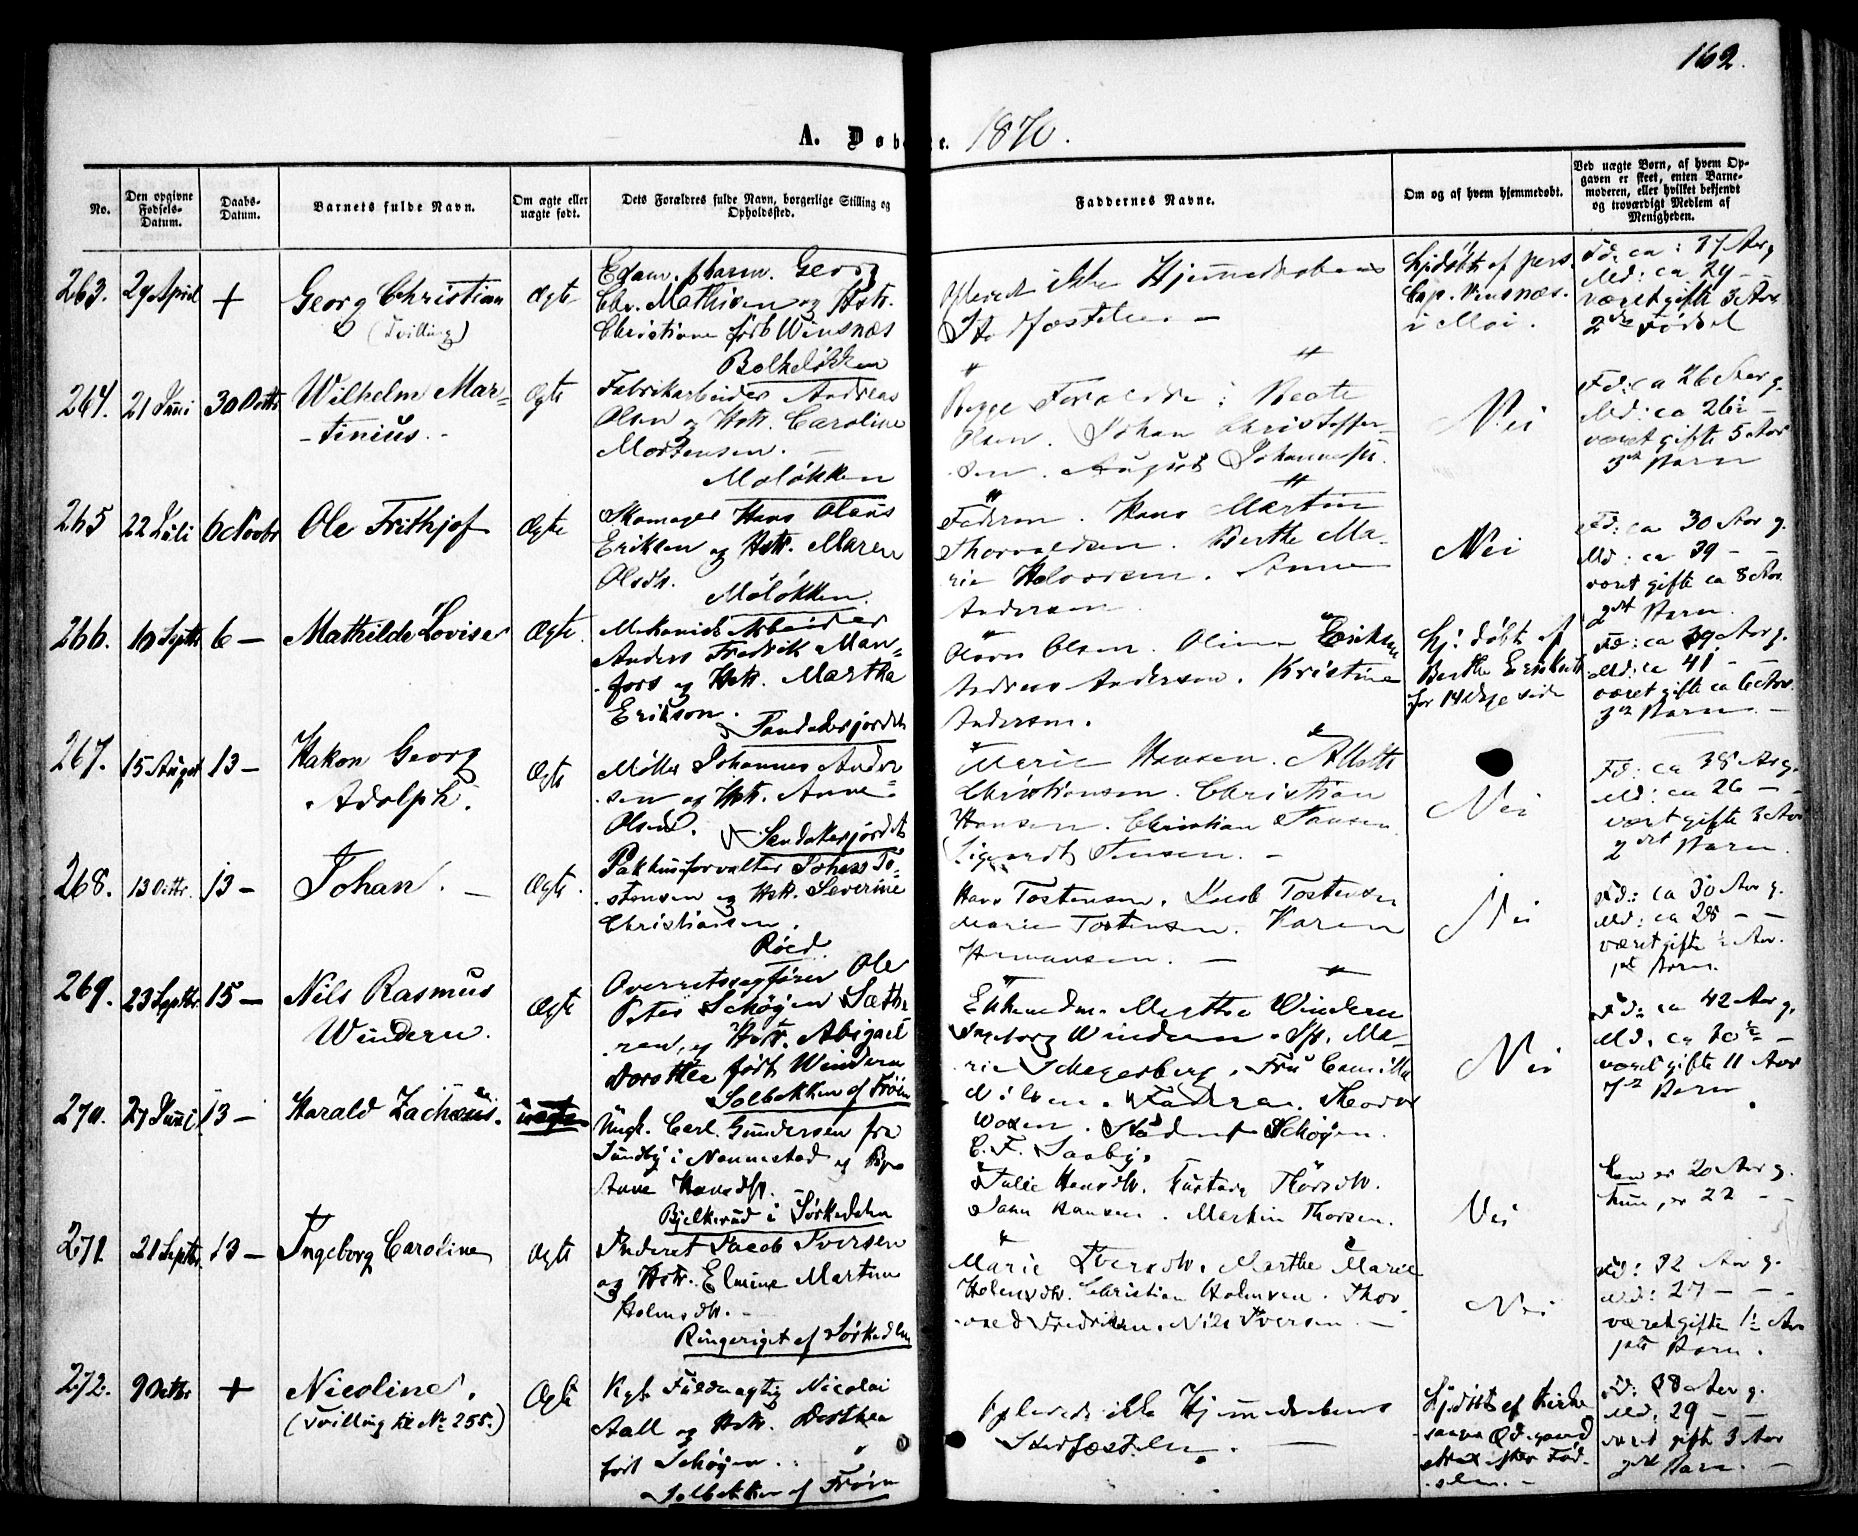 162.
A. Døbte. 1870.
No.
Den opgivne Fødsels-Datum.
Daabs-Datum.
Barnets fulde Navn.
Om ægte eller uægte født.
Dets Forældres fulde Navn, borgerlige Stilling og Opholdsted.
Faddernes Navne.
Om og af hvem hjemmedøbt.
Ved uægte Børn, af hvem Opgaven er skeet, enten Barnemoderen, eller hvilket bekjendt og troværdigt Medlem af Menigheden.
263. 29 April + Georg Christian
(Tvilling)
Ægte
Exam. pharm. Georg
Chr. Mathisen og Hstr.
Christiane født Winsnæs
Bolteløkken
Oplevede ikke Hjemmedaabens
Stadfæstelse. -
Hjdøbt af pers.
Cap. Vinsnæs.
i Moi.
Fd: ca: 37 Aar g.
Md: ca 29 -
været gifte 3 Aar
2den Fødsel
264. 21 Juni 30 Octbr Wilhelm Mar-
-tinius. -
Ægte
Fabrikarbeider Andreas
Olsen og Hstr. Caroline
Mortensen. -
Moløkken
Begge Forældre; Beate
Olsen. Johan Christoffer-
sen. August Johanness.
Nei
Fd: ca 26 Aar g.
Md: ca 26½ -
været gifte 5 Aar
3die Barn
265 22 Juli 6 Novbr Ole Frithjof
Ægte
Skomager Hans Olaus
Eriksen og Hstr. Maren
Olsdtr.
Moløkken.
Faderen. Hans Martin
Thorvaldsen. Berthe Ma-
rie Halvorsen. Anne
Andersen
Nei
Fd: ca 30 Aar g.
Md: ca 39 - -
været gifte ca 8 Aar.
2det Barn.
266. 10 Septbr 6 - Mathilde Lovise
Ægte.
Mekanisk Arbeider
Anders Fredrik Man-
fors og Hstr. Martha
Erikson.
Sandakerjordet
Olsen. Eriksen
Andreas Andersen. Kristine
Andersen.
Hj. døbt af
Berthe
for 14 Dage siden
Fd: ca 39 Aar g.
Md: ca 41 - -
været gifte ca 6 Aar.
3die Barn. -
267. 15 August 13 - Hakon Georg
Adolph.
Ægte
Møller Johannes Ander-
sen og Hstr. Anne
Olsen.
Sandakerjordet
Marie Hansen. Alette
Christiansen. Christian
Hansen. Christian Jansen
Sigvardt Jensen. -
Nei
Fd: ca 38 Aar g.
Md: ca 26 - -
vært gifte 3 Aar
2det Barn.
268. 13 Octbr. 13 - Johan. -
Ægte.
Pakhusforvalter Johans To-
stensen og Hstr. Severine
Christiansen.
Røed
Hans Tostensen. Jacob Tostensen
Marie Tostensen. Karen
Hermansen. -
Nei
Fd: ca 30 Aar g.
Md: ca 28 - -
været gifte ½ Aar.
1ste Barn.
269. 23 Septbr 15 - Nils Rasmus
Windern.
Ægte
Overretssagfører Ole
Peter Schøjen Sæth-
ren, og Hstr. Abigael
Dorothea født Windern
Solbakken af Frøen
Enkemadm. Marthe Windern
Ingeborg Windern. Ma-
rie Schegerberg. Fru Camilla
Nilsen. Faderen. Theodor
Student Schøjen.
C. F. Saaby.
Nei
Fd: ca 42 Aar g.
Md. ca 30½ -
været gifte 11 Aar
7de Barn
270. 27 Juni 13 - Harald Zachæus.
uægte
Ungk. Carl Gundersen fra
Sundby i Nannestad og Pige
Anne Hansdtr.
Bjelkerud i Sørkedalen
Julie Hansdtr. Gustava Thorsdtr.
Hansen. Martin Thorsen.
Nei
han er 20 Aar g.
hun er 22 - -
271. 21 Septbr. 13 - Ingeborg Caroline
Ægte
Inderst Jacob Iversen
og Hstr. Elmine Martine
Holmsdtr. -
Ringeriget af Sørkedalen
Marie Iversdtr. Marthe Marie
Holmsdtr. Christian Holmsen. Thor-
vald Fredriksen. Nils Iversen. -
Nei
Fd: 32 Aar g.
Md: 27 - - -
været gifte 1½ Aar
1ste Barn.
272. 9 Octbr + Nicoline.
(Tvilling til No 255.)
Ægte
Kgl. Fuldmægtig Nicolai
Aall og Hstr. Dorthea
født Schøjen.
Solbakken af Frøen
Oplevede ikke Hjemmedaabens
Stadfæstelse. -
Hjdøbt af Kirke-
sanger Ødegaard
strax efter Fød-
selen. -
Fd: 38 Aar g.
Md. 29 - -
været gifte 3 Aar
2det Barn. -